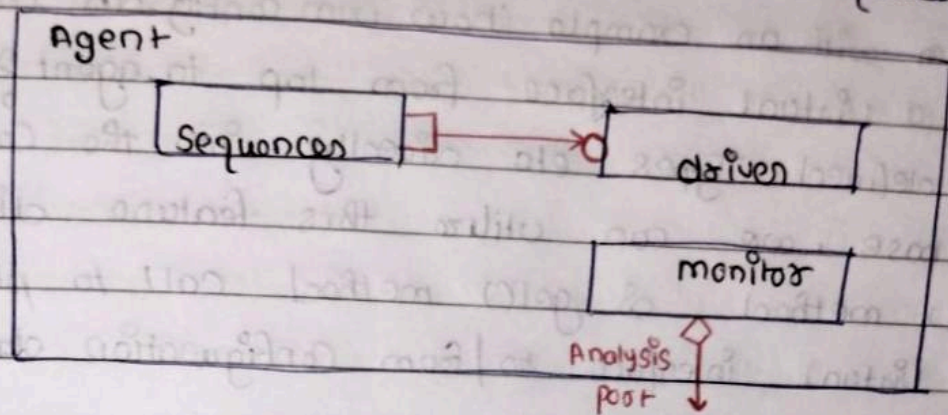 Agent
Sequencer
driver
monitor
Analysis
port